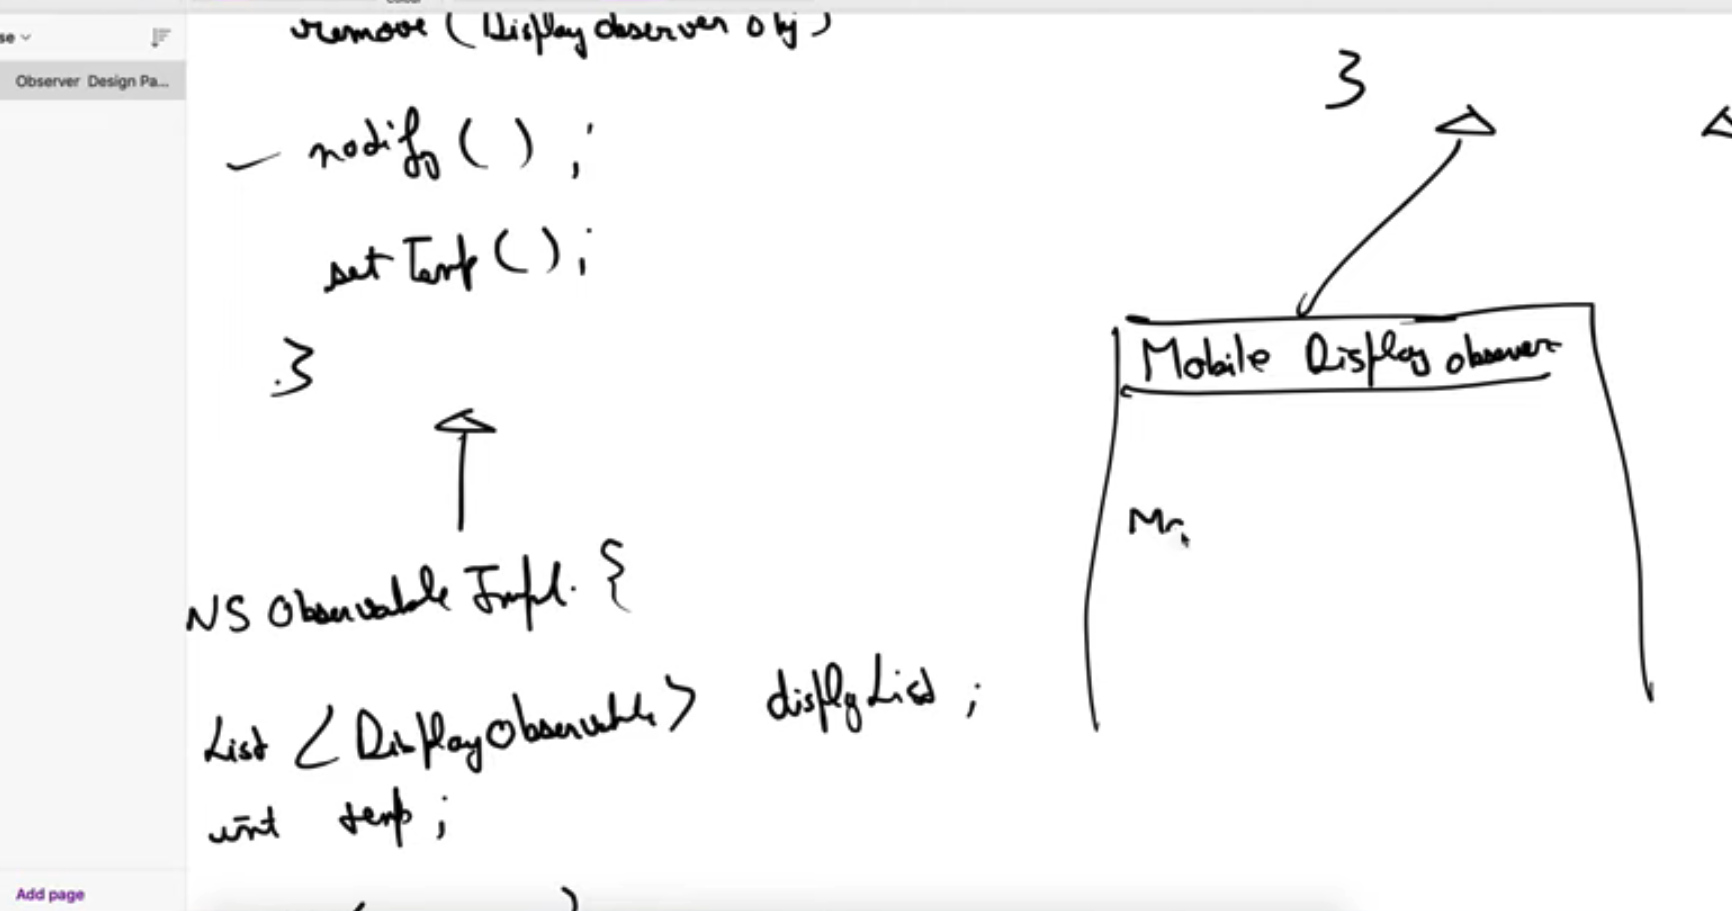 se
Observer Design Pa...
remove ( Display observer obj )
notify ( ) ;
set Temp ( ) ;
}
NS Observable Impl. {
List < Display Observable > display List ;
int temp ;
Add page
}
Mobile Display observer